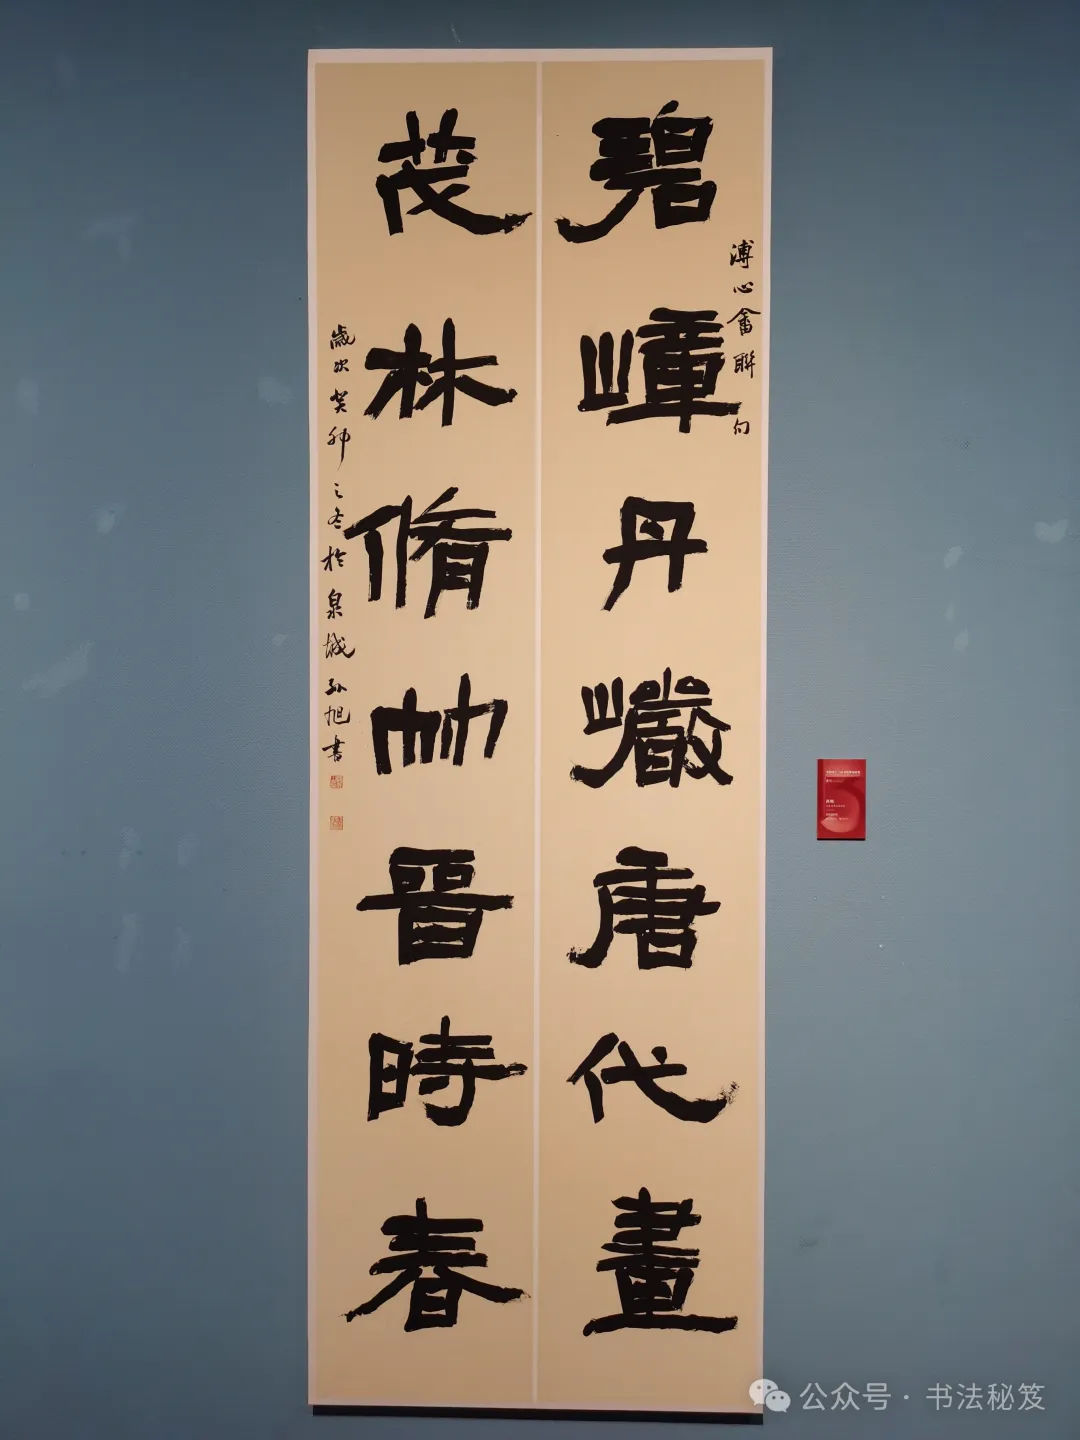 碧嶂丹巖唐代畫
溥心畬聯句
茂林脩竹晉時春
歲次癸卯之冬於泉城孫旭書
公众号·书法秘笈